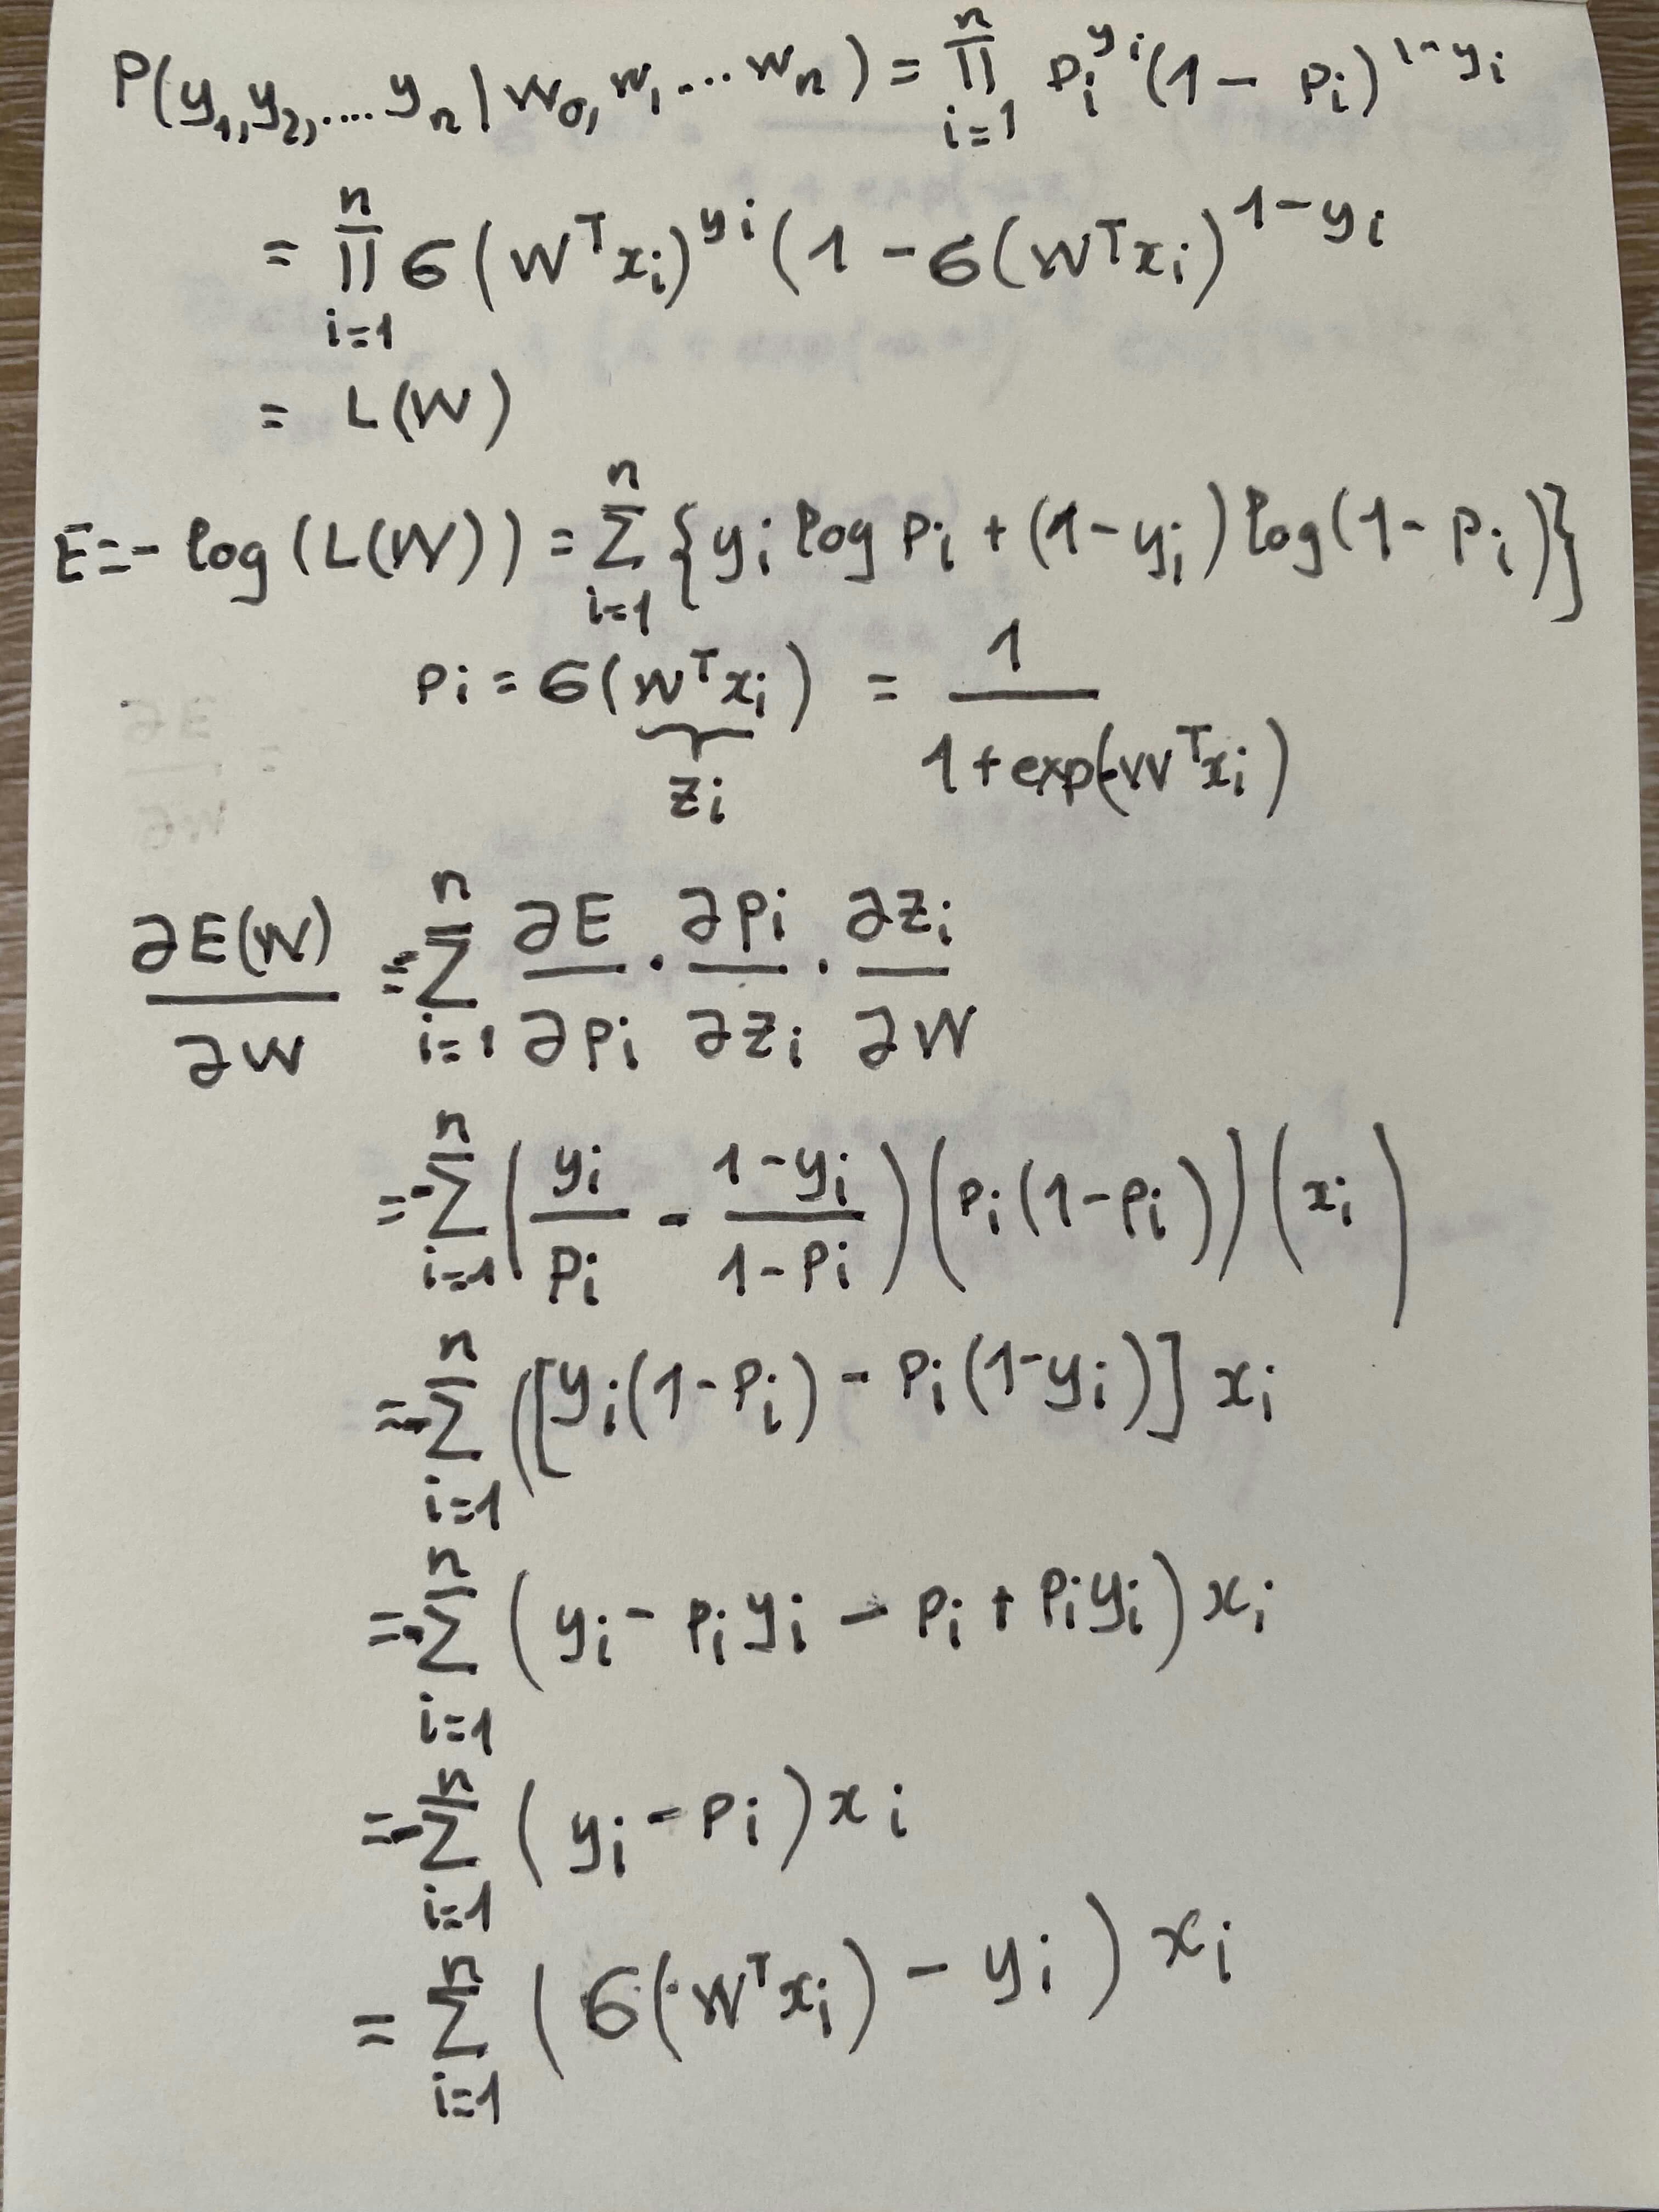 P(y₁,y₂,....yₙ|w₀,w₁...wₙ) = ∏ᵢ₌₁ⁿ pᵢ^yᵢ (1 - pᵢ)^1-yᵢ
= ∏ᵢ₌₁ⁿ σ(Wᵀxᵢ)^yᵢ (1 - σ(Wᵀxᵢ)^1-yᵢ
= L(W)
E = - log (L(W)) = ∑ᵢ₌₁ⁿ {yᵢ log pᵢ + (1-yᵢ) log(1-pᵢ)}
pᵢ = σ(Wᵀxᵢ) = 1 / 1+exp(-Wᵀxᵢ)
zᵢ
∂E(W)/∂W = ∑ᵢ₌₁ⁿ ∂E/∂pᵢ · ∂pᵢ/∂zᵢ · ∂zᵢ/∂W
= -∑ᵢ₌₁ⁿ (yᵢ/pᵢ - 1-yᵢ/1-pᵢ)(pᵢ(1-pᵢ))(xᵢ)
= -∑ᵢ₌₁ⁿ ([yᵢ(1-pᵢ) - pᵢ(1-yᵢ)] xᵢ
= -∑ᵢ₌₁ⁿ (yᵢ - pᵢyᵢ - pᵢ + pᵢyᵢ) xᵢ
= -∑ᵢ₌₁ⁿ (yᵢ - pᵢ) xᵢ
= ∑ᵢ₌₁ⁿ (σ(Wᵀxᵢ) - yᵢ) xᵢ